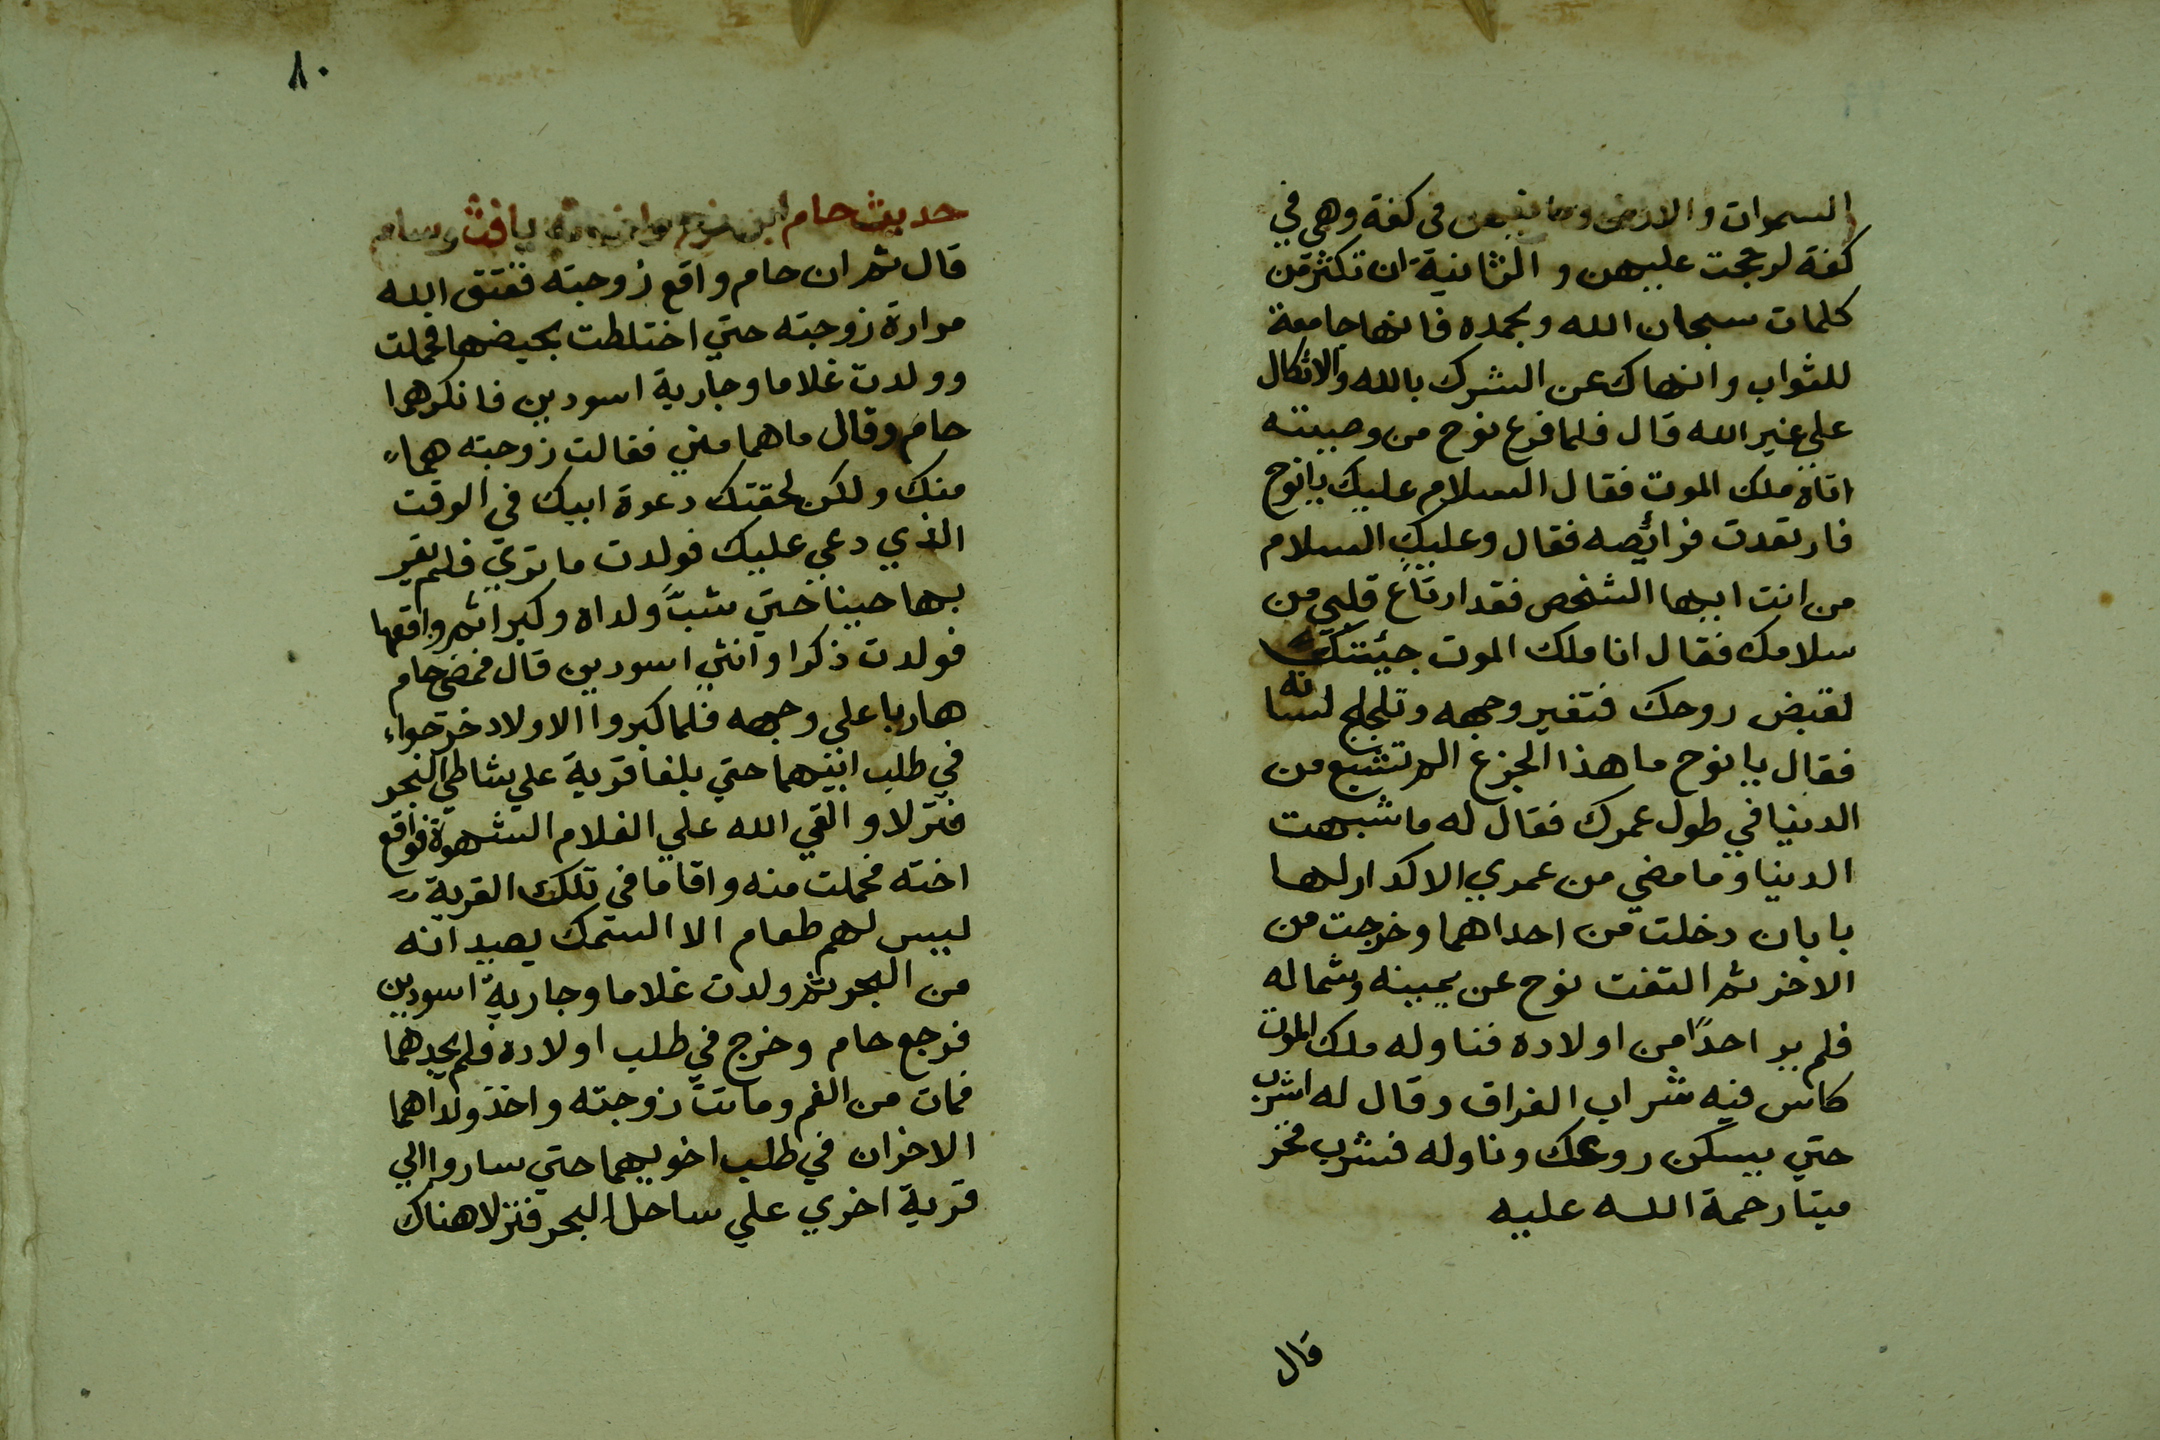 السموات والارض وما فيهن في كفة وهي في
كفة لرجحت عليهن والثانية ان تكثر من
كلمات سبحان الله وبحمده فانها جامعة
للثواب وانهاك عن الشرك بالله والاتكال
على غير الله قال فلما فرغ نوح من وصيته
اتاه ملك الموت فقال السلام عليك يانوح
فارتعدت فرائصه فقال وعليك السلام
من انت ايها الشخص فقد ارتاع قلبي من
سلامك فقال انا ملك الموت جيئتك
لقبض روحك فتغير وجهه وتلجلج لسانه
فقال يا نوح ما هذا الجزع الم تشبع من
الدنيا في طول عمرك فقال له ما شبهت
الدنيا وما مضي من عمري الا كدار لها
بابان دخلت من احداهما وخرجت من
الاخر ثم التفت نوح عن يمينه وشماله
فلم ير احدًا من اولاده فناوله ملك الموت
كاس فيه شراب الفراق وقال له اشرب
حتي يسكن روعك وناوله فشرب فخر
ميتا رحمة الله عليه
قال
٨٠
حديث حام ابن نوح واخوته يافث وسام
قال ثم ان حام واقع زوجته ففتق الله
مرارة زوجته حتي اختلطت بحيضها فحملت
وولدت غلاما وجارية اسودين فانكرهما
حام وقال ما هما مني فقالت زوجته هما
منك ولكن لحقتك دعوة ابيك في الوقت
الذي دعي عليك فولدت ما تري فلم يقر
بها حينا حتي شب ولداه وكبرا ثم واقعها
فولدت ذكرا وانثي اسودين قال فمضي حام
هاربا علي وجهه فلما كبروا الاولاد خرجواء
في طلب ابيهما حتي بلغا قرية علي شاطي البحر
فنزلا والقي الله علي الغلام الشهوة فواقع
اخته فحملت منه واقاما في تلك القرية
ليس لهم طعام الا السمك يصيدانه
من البحر ثم ولدت غلاما وجارية اسودين
فرجع حام وخرج في طلب اولاده فلم يجدهما
فمات من الغم وماتت زوجته واخذ ولداهما
الاخران في طلب اخويهما حتي ساروا الي
قرية اخري علي ساحل البحر فنزلا هناك